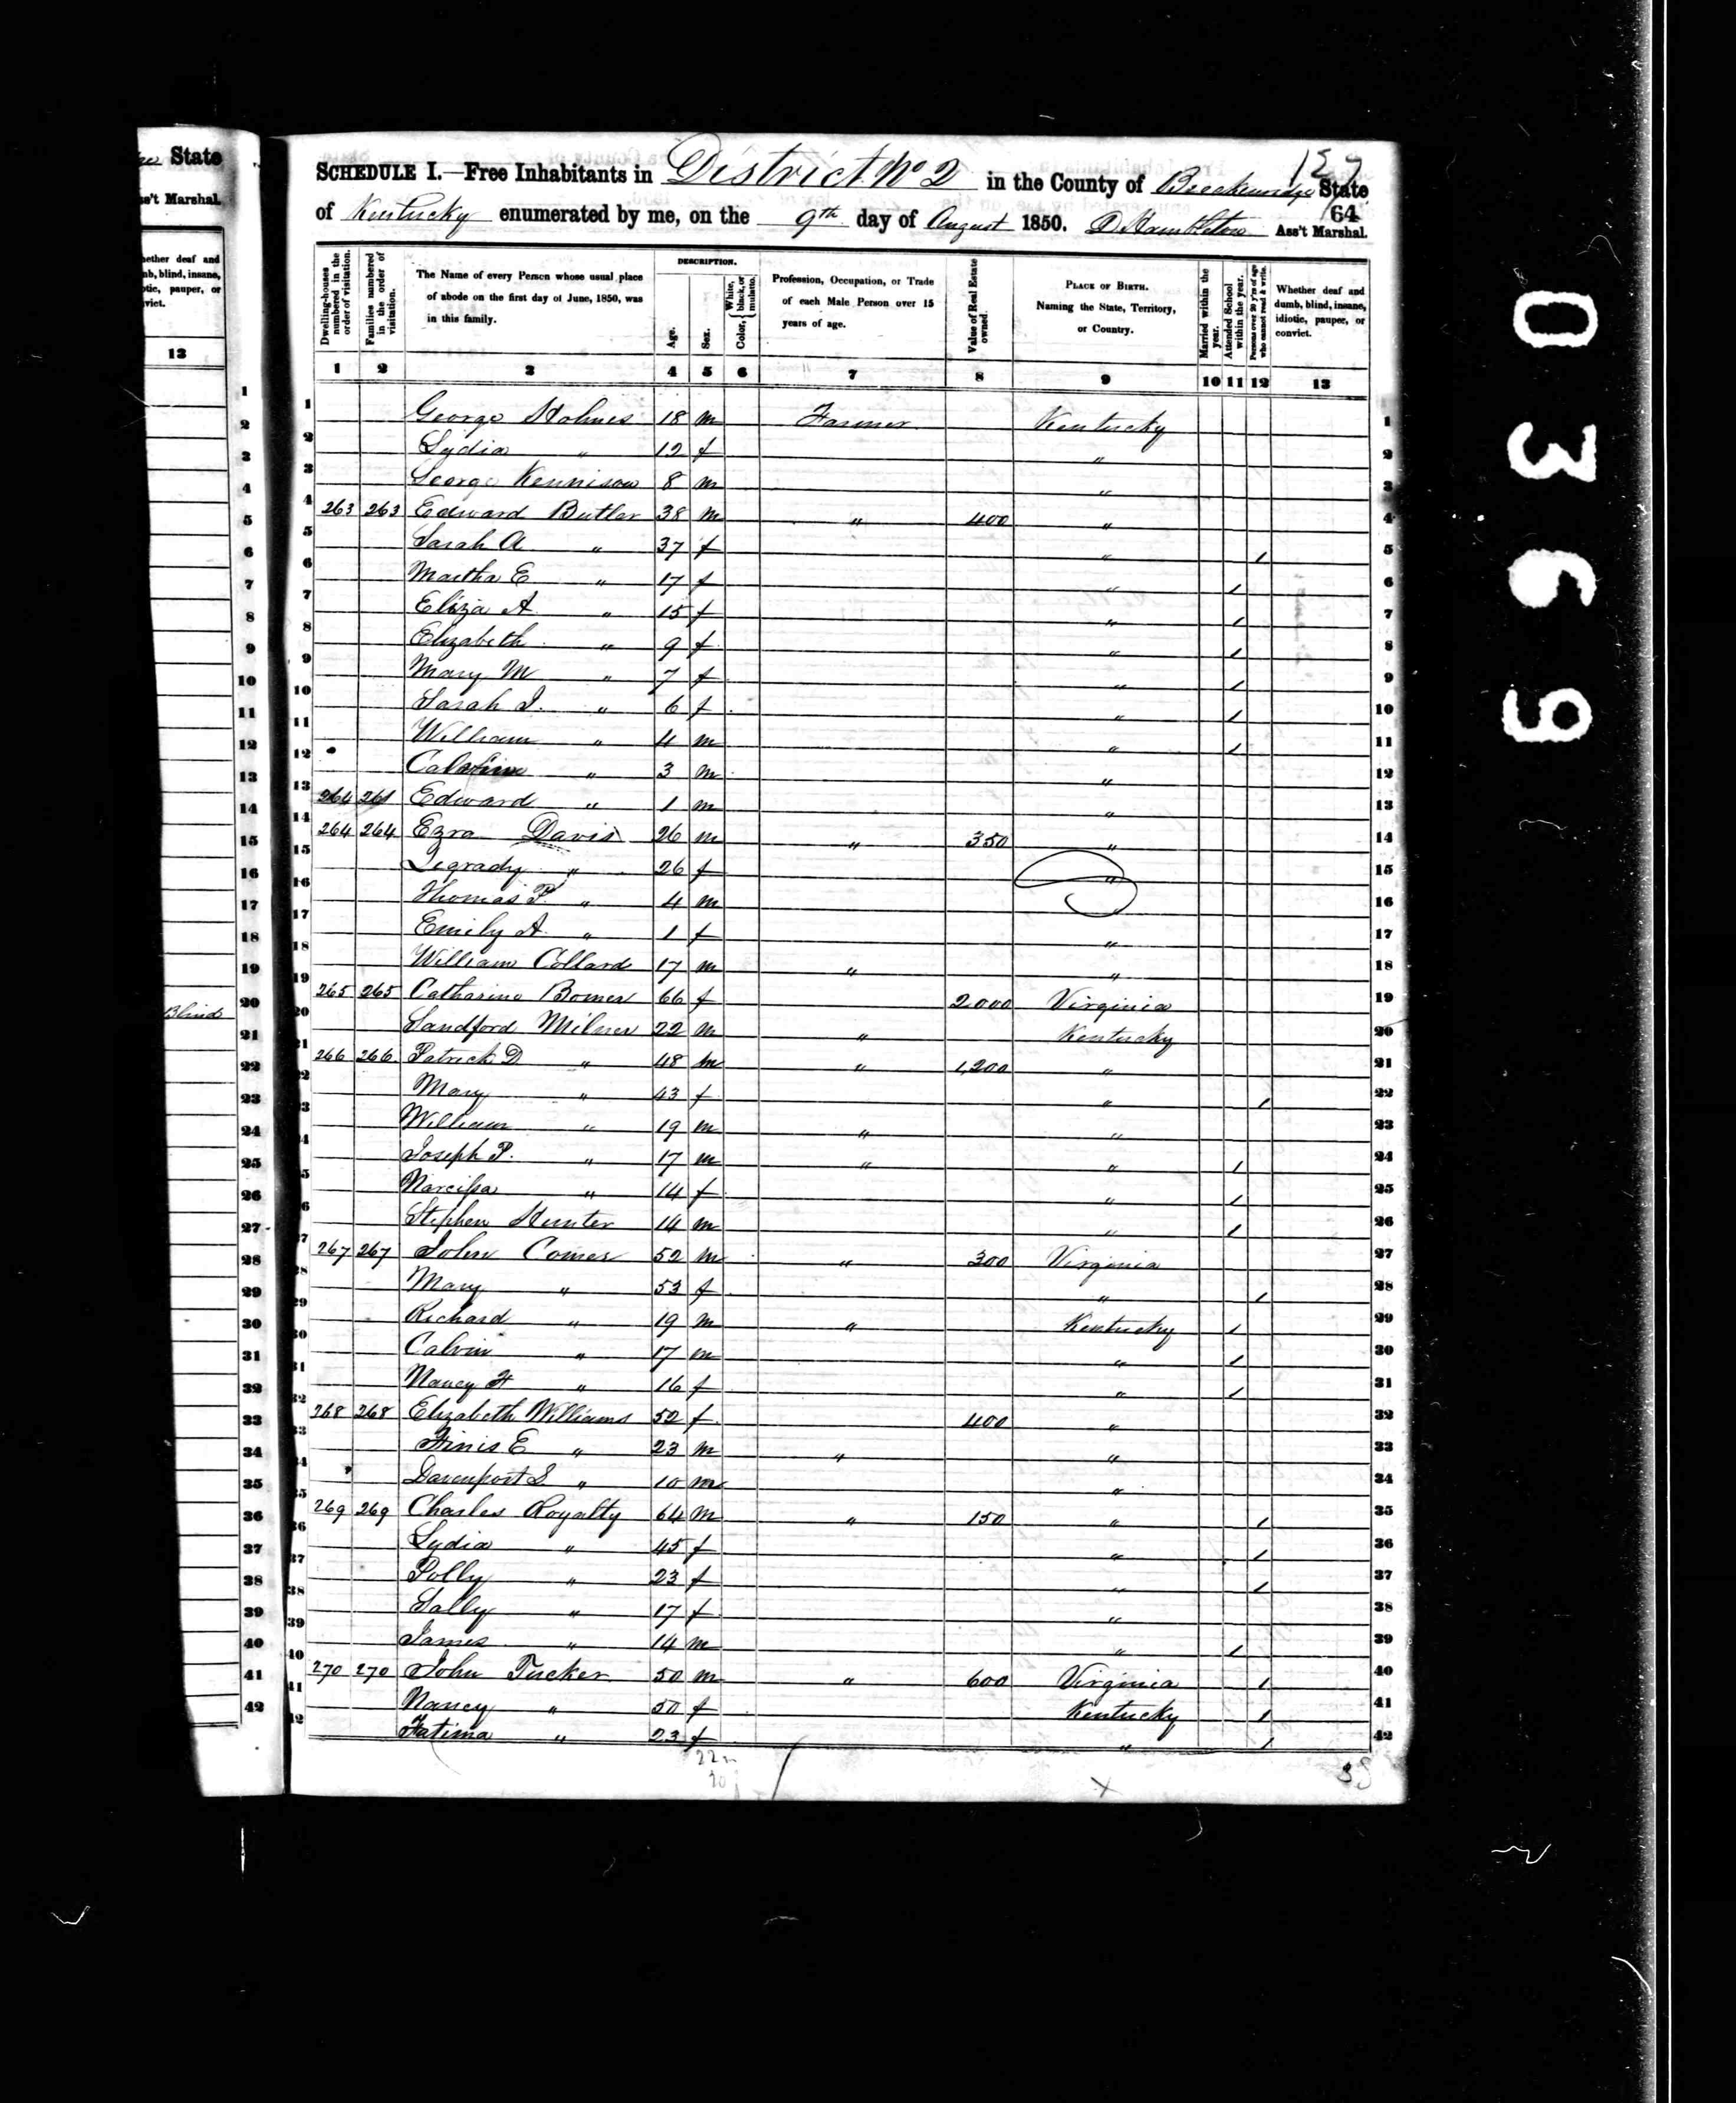 127
SCHEDULE I.—Free Inhabitants in District No 2 in the County of Breckenridge State
of Kentucky enumerated by me, on the 9th day of August 1850. D Hambleton Ass't Marshal.
64
State
Ass't Marshal.
Dwelling-houses numbered in the order of visitation.
Families numbered in the order of visitation.
The Name of every Person whose usual place of abode on the first day of June, 1850, was in this family.
DESCRIPTION.
Age.
Sex.
Color, White, black, or mulatto.
Profession, Occupation, or Trade of each Male Person over 15 years of age.
Value of Real Estate owned.
PLACE OF BIRTH. Naming the State, Territory, or Country.
Married within the year.
Attended School within the year.
Persons over 20 y'rs of age who cannot read & write.
Whether deaf and dumb, blind, insane, idiotic, pauper, or convict.
1 2 3 4 5 6 7 8 9 10 11 12 13
1 George Holmes 18 m Farmer Kentucky 1
2 Lydia " 12 f " 2
3 George Kennison 8 m " 3
4 263 263 Edward Butler 38 m " 400 " 4
5 Sarah A " 37 f " / 5
6 Martha E " 17 f " / 6
7 Eliza A " 15 f " / 7
8 Elizabeth " 9 f " / 8
9 Mary M " 7 f " / 9
10 Sarah J. " 6 f " / 10
11 William " 4 m " / 11
12 " 3 m " 12
13 264 Edward " 1 m " 13
14 264 264 Ezra Davis 26 m " 350 " 14
15 Legrady " 26 f " 15
16 Thomas P. " 4 m " 16
17 Emily A " 1 f " 17
18 William Collard 17 m " " 18
19 265 265 Catharine Bomer 66 f 2000 Virginia 19
20 Sandford Milner 22 m " Kentucky 20
21 266 266 Patrick D " 48 m " 1,200 " 21
22 Mary " 43 f " / 22
23 William " 19 m " " 23
24 Joseph P. " 17 m " " / 24
25 Narcissa " 14 f " / 25
26 Stephen Hunter 14 m " / 26
27 267 267 John Comer 52 m " 300 Virginia 27
28 Mary " 53 f " / 28
29 Richard " 19 m " Kentucky / 29
30 Calvin " 17 m " / 30
31 Nancy H " 16 f " / 31
32 268 268 Elizabeth Williams 52 f 400 " 32
33 Finis E " 23 m " " 33
34 Davenport S " 10 m " 34
35 269 269 Charles Royalty 64 m " 150 " / 35
36 Lydia " 45 f " / 36
37 Polly " 23 f " / 37
38 Sally " 17 f " 38
39 James " 14 m " / 39
40 270 270 John Tucker 50 m " 600 Virginia / 40
41 Nancy " 50 f Kentucky / 41
42 Fatima " 23 f " / 42
Blind
0369